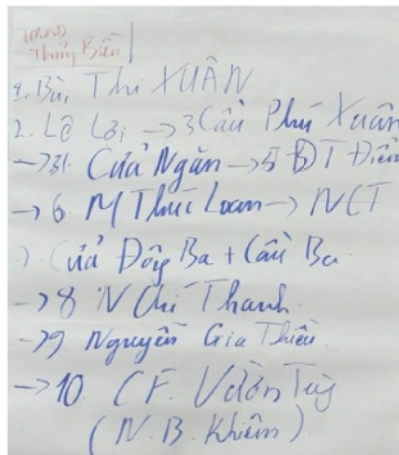 UBND
Thủy Biều
1. Bùi Thị XUÂN
2. Lê Lợi → 3 Cầu Phú Xuân
→ 4. Cửa Ngăn → 5 ĐT Điểm
→ 6. M Thúc Loan → NCT
7 Cửa Đông Ba + Cầu Ba
→ 8 N Chí Thanh
→ 9 Nguyễn Gia Thiều
→ 10. CF. Vườn Tùy
(N. B. Khiêm)